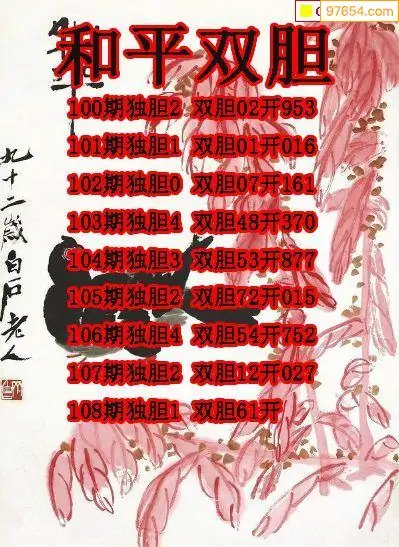 97654.com
和平双胆
100期独胆2 双胆02开953
101期独胆1 双胆01开016
102期独胆0 双胆07开161
103期独胆4 双胆48开370
104期独胆3 双胆53开877
105期独胆2 双胆72开015
106期独胆4 双胆54开752
107期独胆2 双胆12开027
108期独胆1 双胆61开
九十二岁白石老人